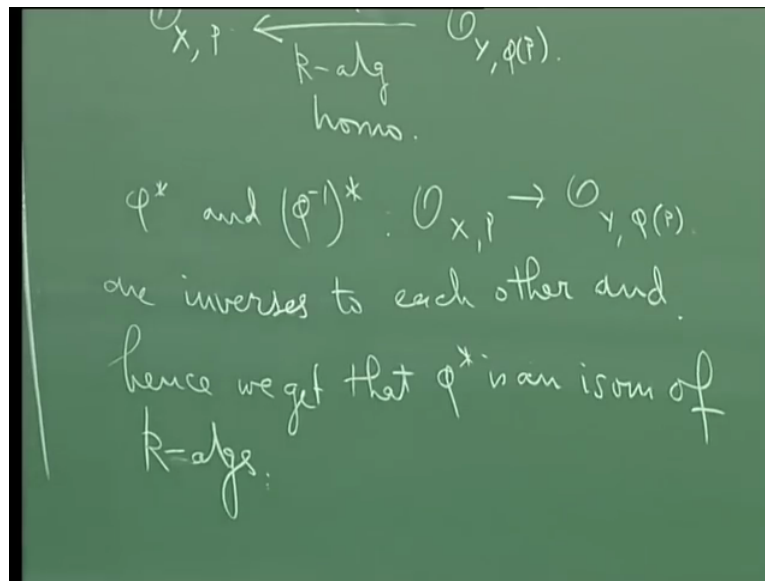 𝒪_{X,P} ← 𝒪_{Y,φ(P)}.
k-alg
homo.
φ* and (φ⁻¹)* : 𝒪_{X,P} → 𝒪_{Y,φ(P)}.
are inverses to each other and.
hence we get that φ* is an isom of
k-algs.